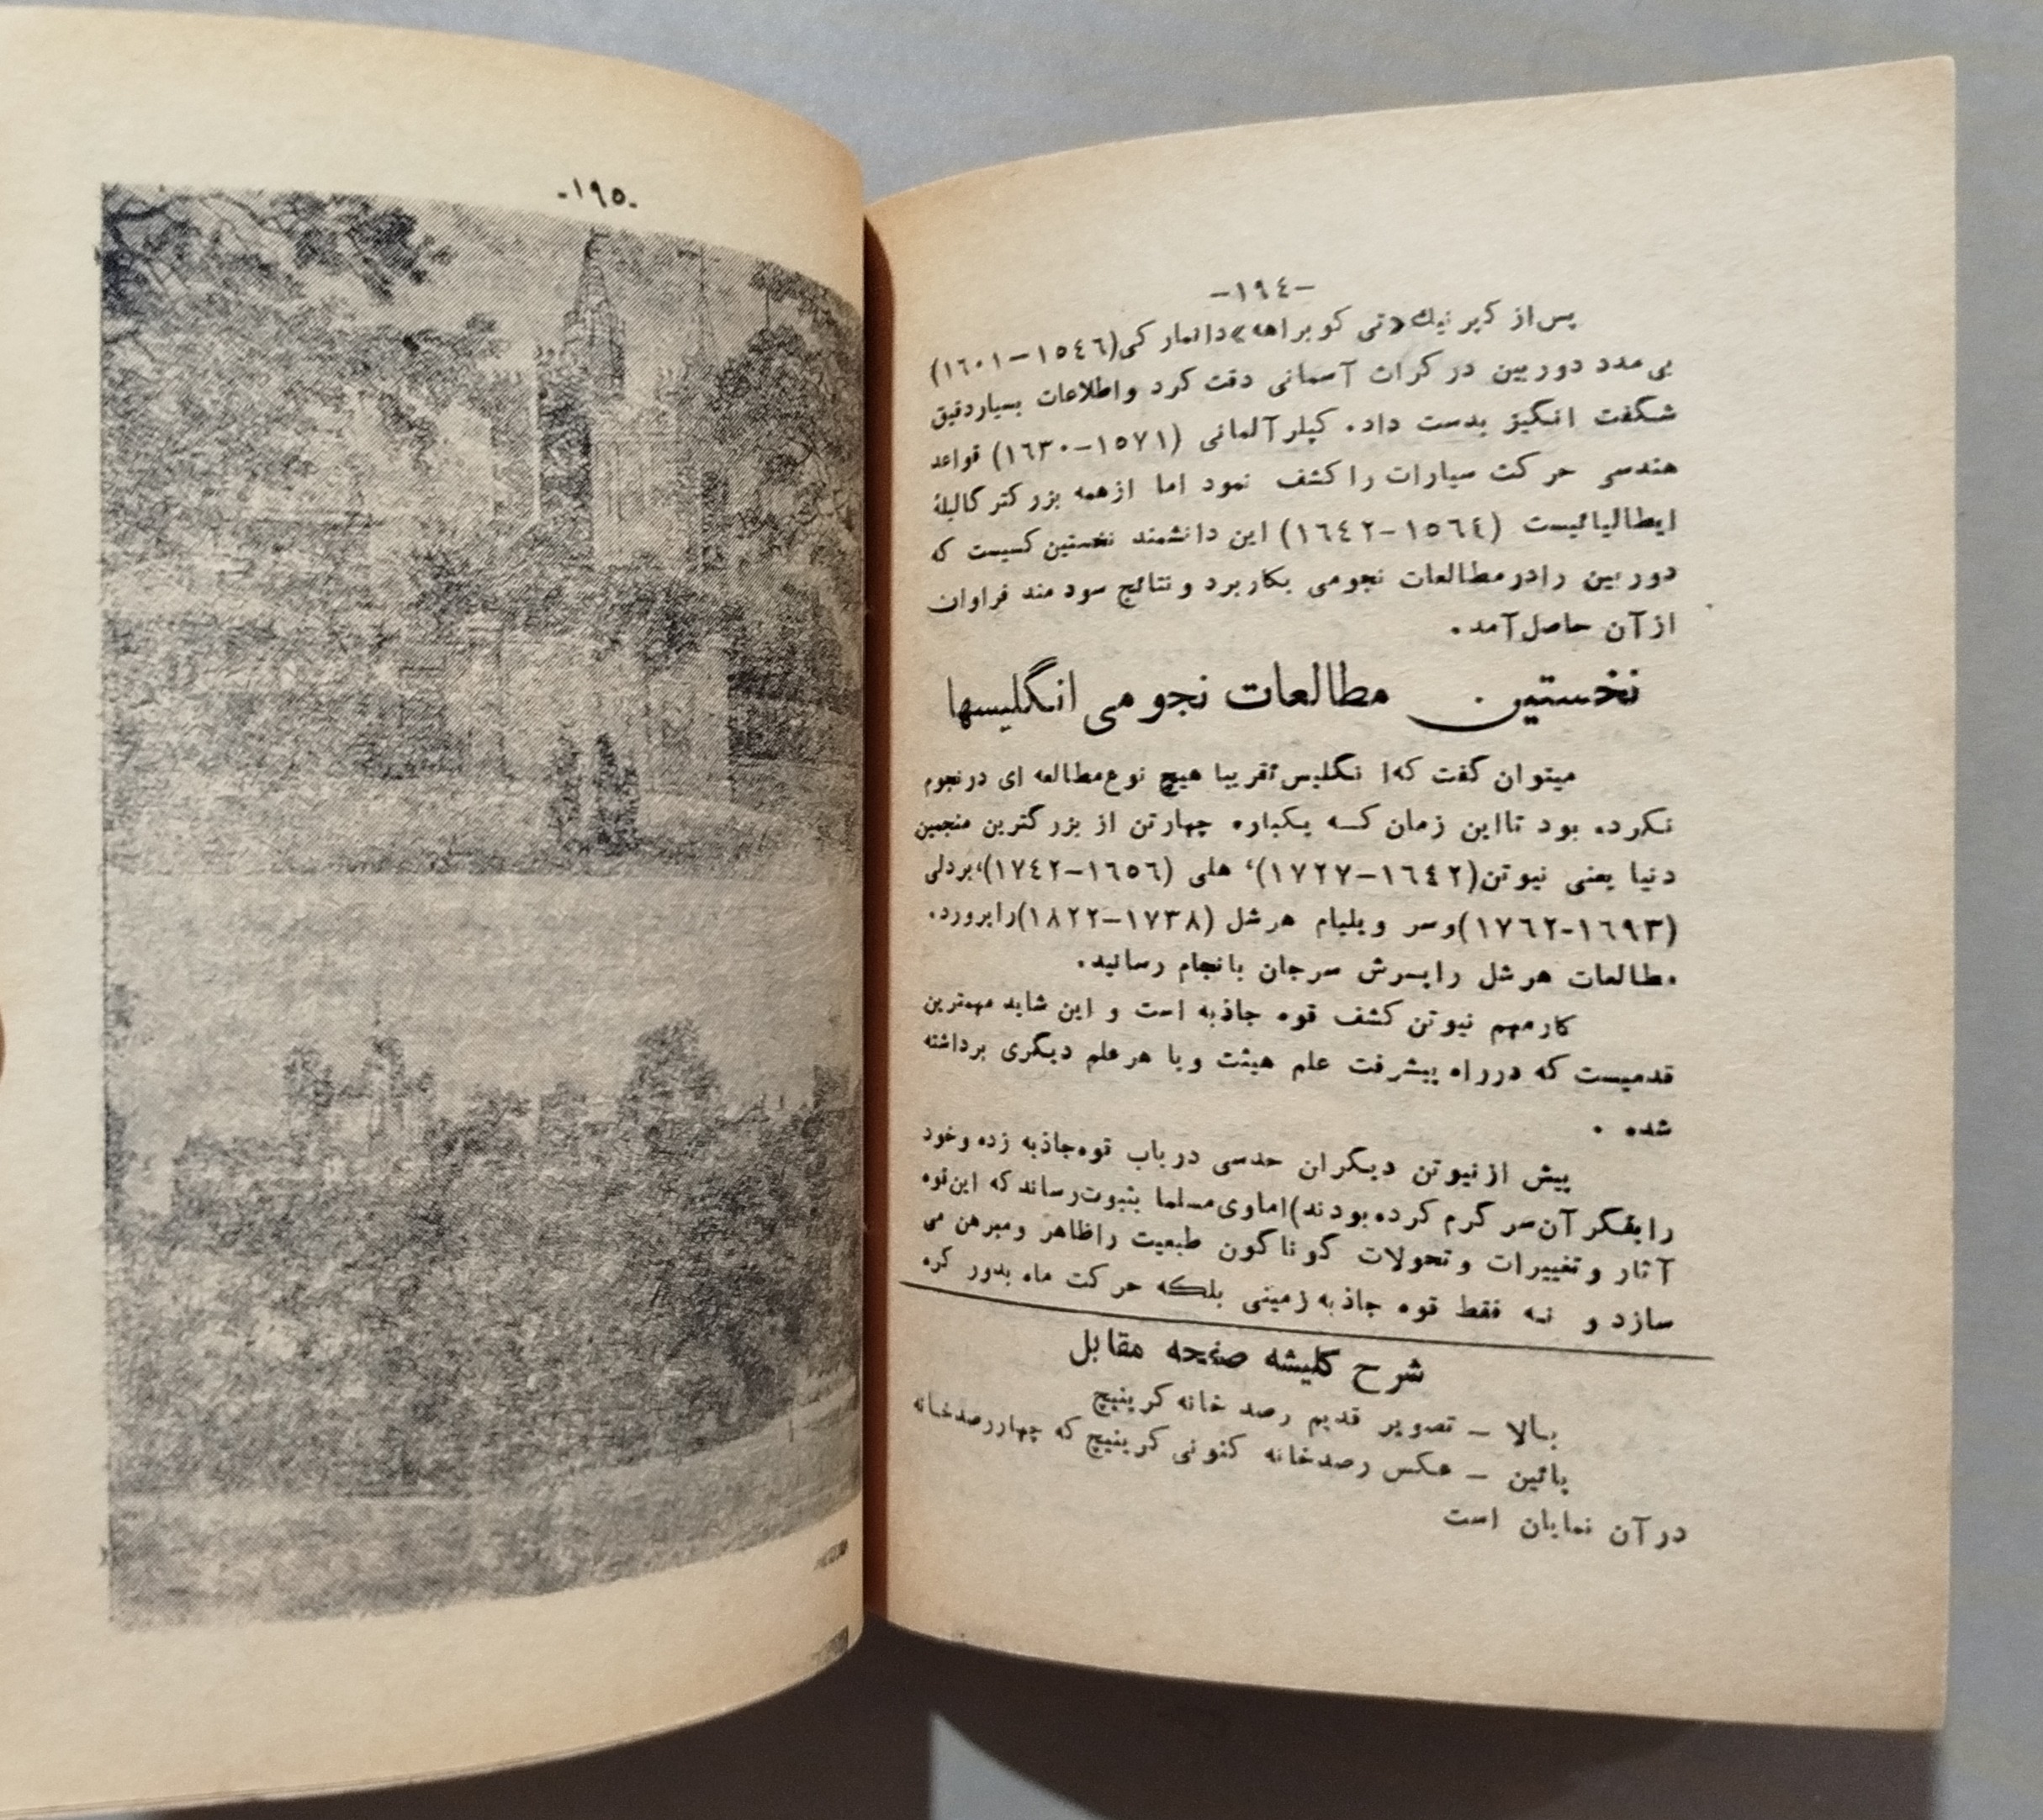 -١٩٤-
پس‌از کپر نیك«تی کو براهه»دانمار کی(١٥٤٦-١٦٠١)
بی‌مدد دوربین در کرات آسمانی دقت کرد واطلاعات بسیاردقیق
شگفت انگیز بدست داد. کپلر آلمانی (١٥٧١-١٦٣٠) قواعد
هندسی حر کت سیارات را کشف نمود اما ازهمه بزر کتر گالیلهٔ
ایطالیائیست (١٥٦٤-١٦٤٢) این دانشمند نخستین کسیست که
دوربین رادرمطالعات نجومی بکاربرد و نتائج سودمند فراوان
ازآن حاصل‌آمد.
نخستین مطالعات نجومی انگلیسها
میتوان گفت که‌ا نگلیس‌تقریبا هیچ نوع‌مطالعه ای درنجوم
نکرده بود تااین زمان که یکباره چهارتن از بزر گترین منجمین
دنیا یعنی نیوتن(١٦٤٢-١٧٢٧)، هلی (١٦٥٦-١٧٤٢)،بردلی
(١٦٩٣-١٧٦٢)وسر ویلیام هرشل (١٧٣٨-١٨٢٢)راپرورد.
مطالعات هرشل راپسرش سرجان بانجام رسانید.
کارمهم نیوتن کشف قوه جاذبه است و این شاید مهمترین
قدمیست که درراه پیشرفت علم هیئت ویا هرعلم دیگری برداشته
شده .
پیش ازنیوتن دیگران حدسی درباب قوه‌جاذبه زده وخود
رابفکر آن‌سر گرم کرده‌بودند)اماوی‌مسلما بثبوت‌رساند که این‌قوه
آثار وتغییرات وتحولات کوناکون طبعیت راظاهر ومبرهن می
سازد و نه فقط قوه جاذبه‌زمینی بلکه حر کت ماه بدور کره
شرح کلیشه صفحه مقابل
بالا - تصویر قدیم رصد خانه کرینیچ
پائین - عکس رصدخانه کنونی کرینیچ که چهاررصدخانه
درآن نمایان است
-١٩٥-